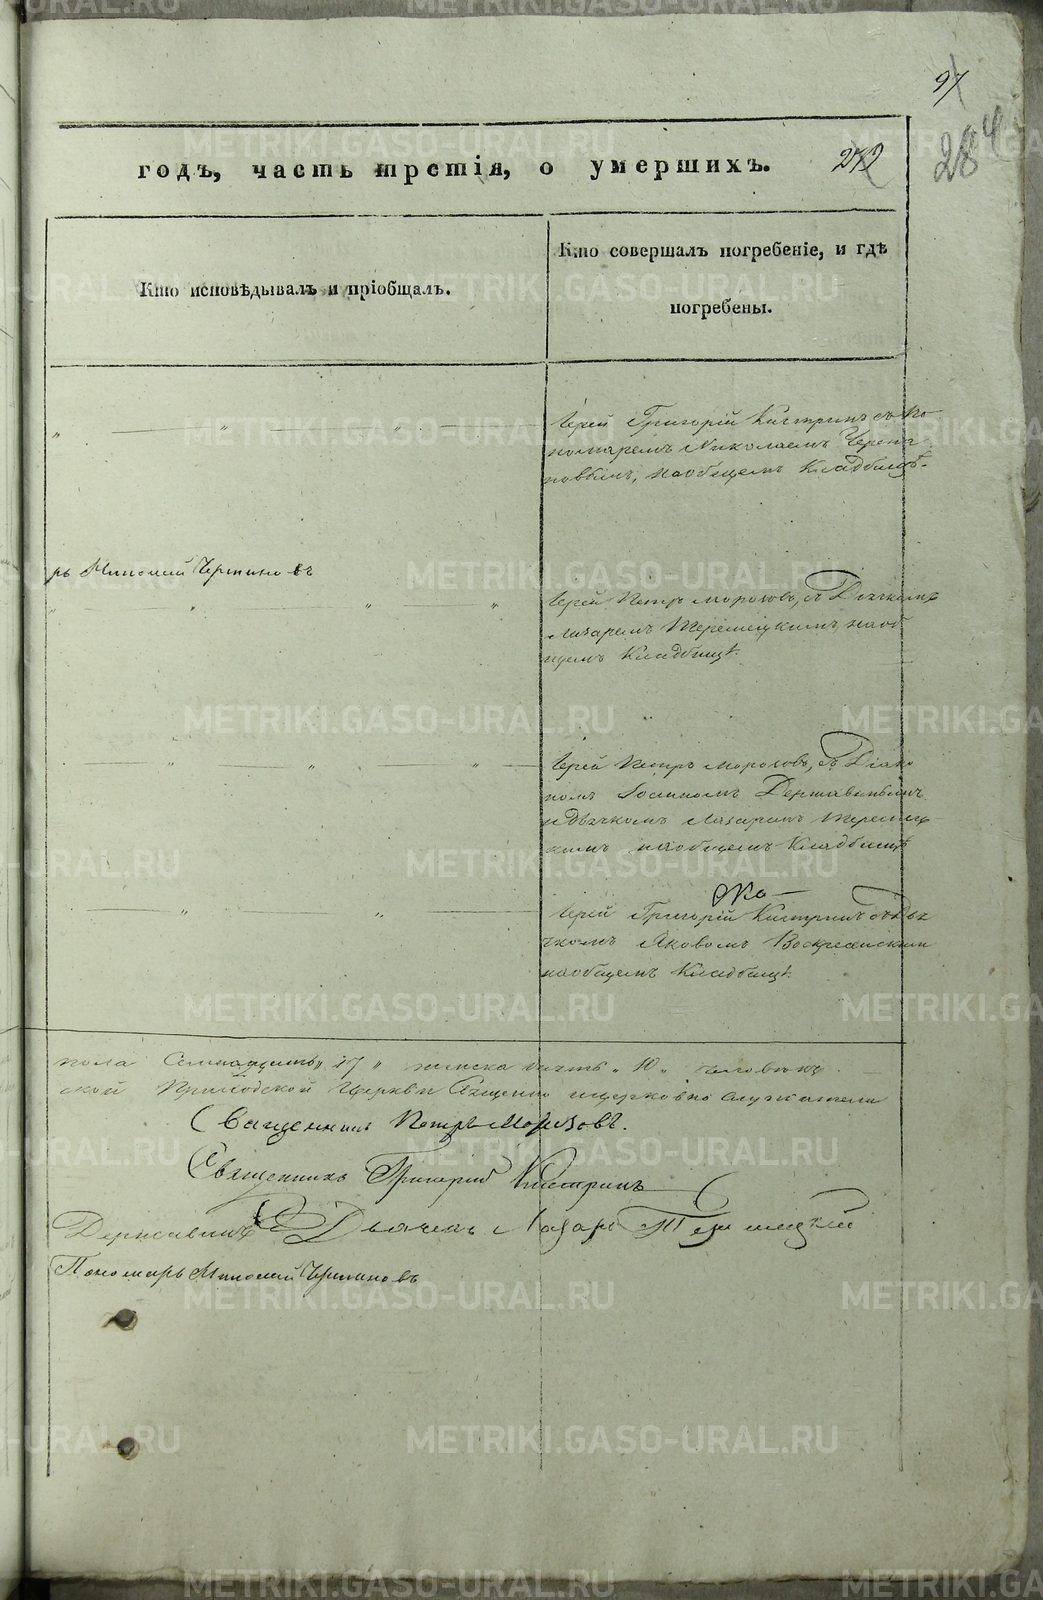 97
284
годъ, часть третія, о умершихъ.
272
Кто исповѣдывалъ и пріобщалъ.
Кто совершалъ погребеніе, и гдѣ
погребены.
Іерей Григорій Кистринъ съ По
номаремъ Николаемъ Черепа
новымъ, на общемъ Кладбищѣ.
рь Николай Черпановъ
Іерей Петръ Морозовъ, съ Дьячкомъ
Лазаремъ на об
щемъ Кладбищѣ.
Іерей Петръ Морозовъ, съ Діако
номъ Іоанномъ Державинымъ
и дьячкомъ Лазаремъ
кимъ на общемъ Кладбищѣ
Іерей Григорій Кистринъ съ Дья
чкомъ Яковомъ Воскресенскимъ
на общемъ Кладбищѣ.
пола 17 женска 10 человѣкъ
ской Приходской Церкви Священно и церковно служители
Священникъ Петръ Морозовъ.
Священникъ Григорій Кистринъ
Державинъ Дьячекъ Лазарь
Пономарь Николай
METRIKI.GASO-URAL.RU